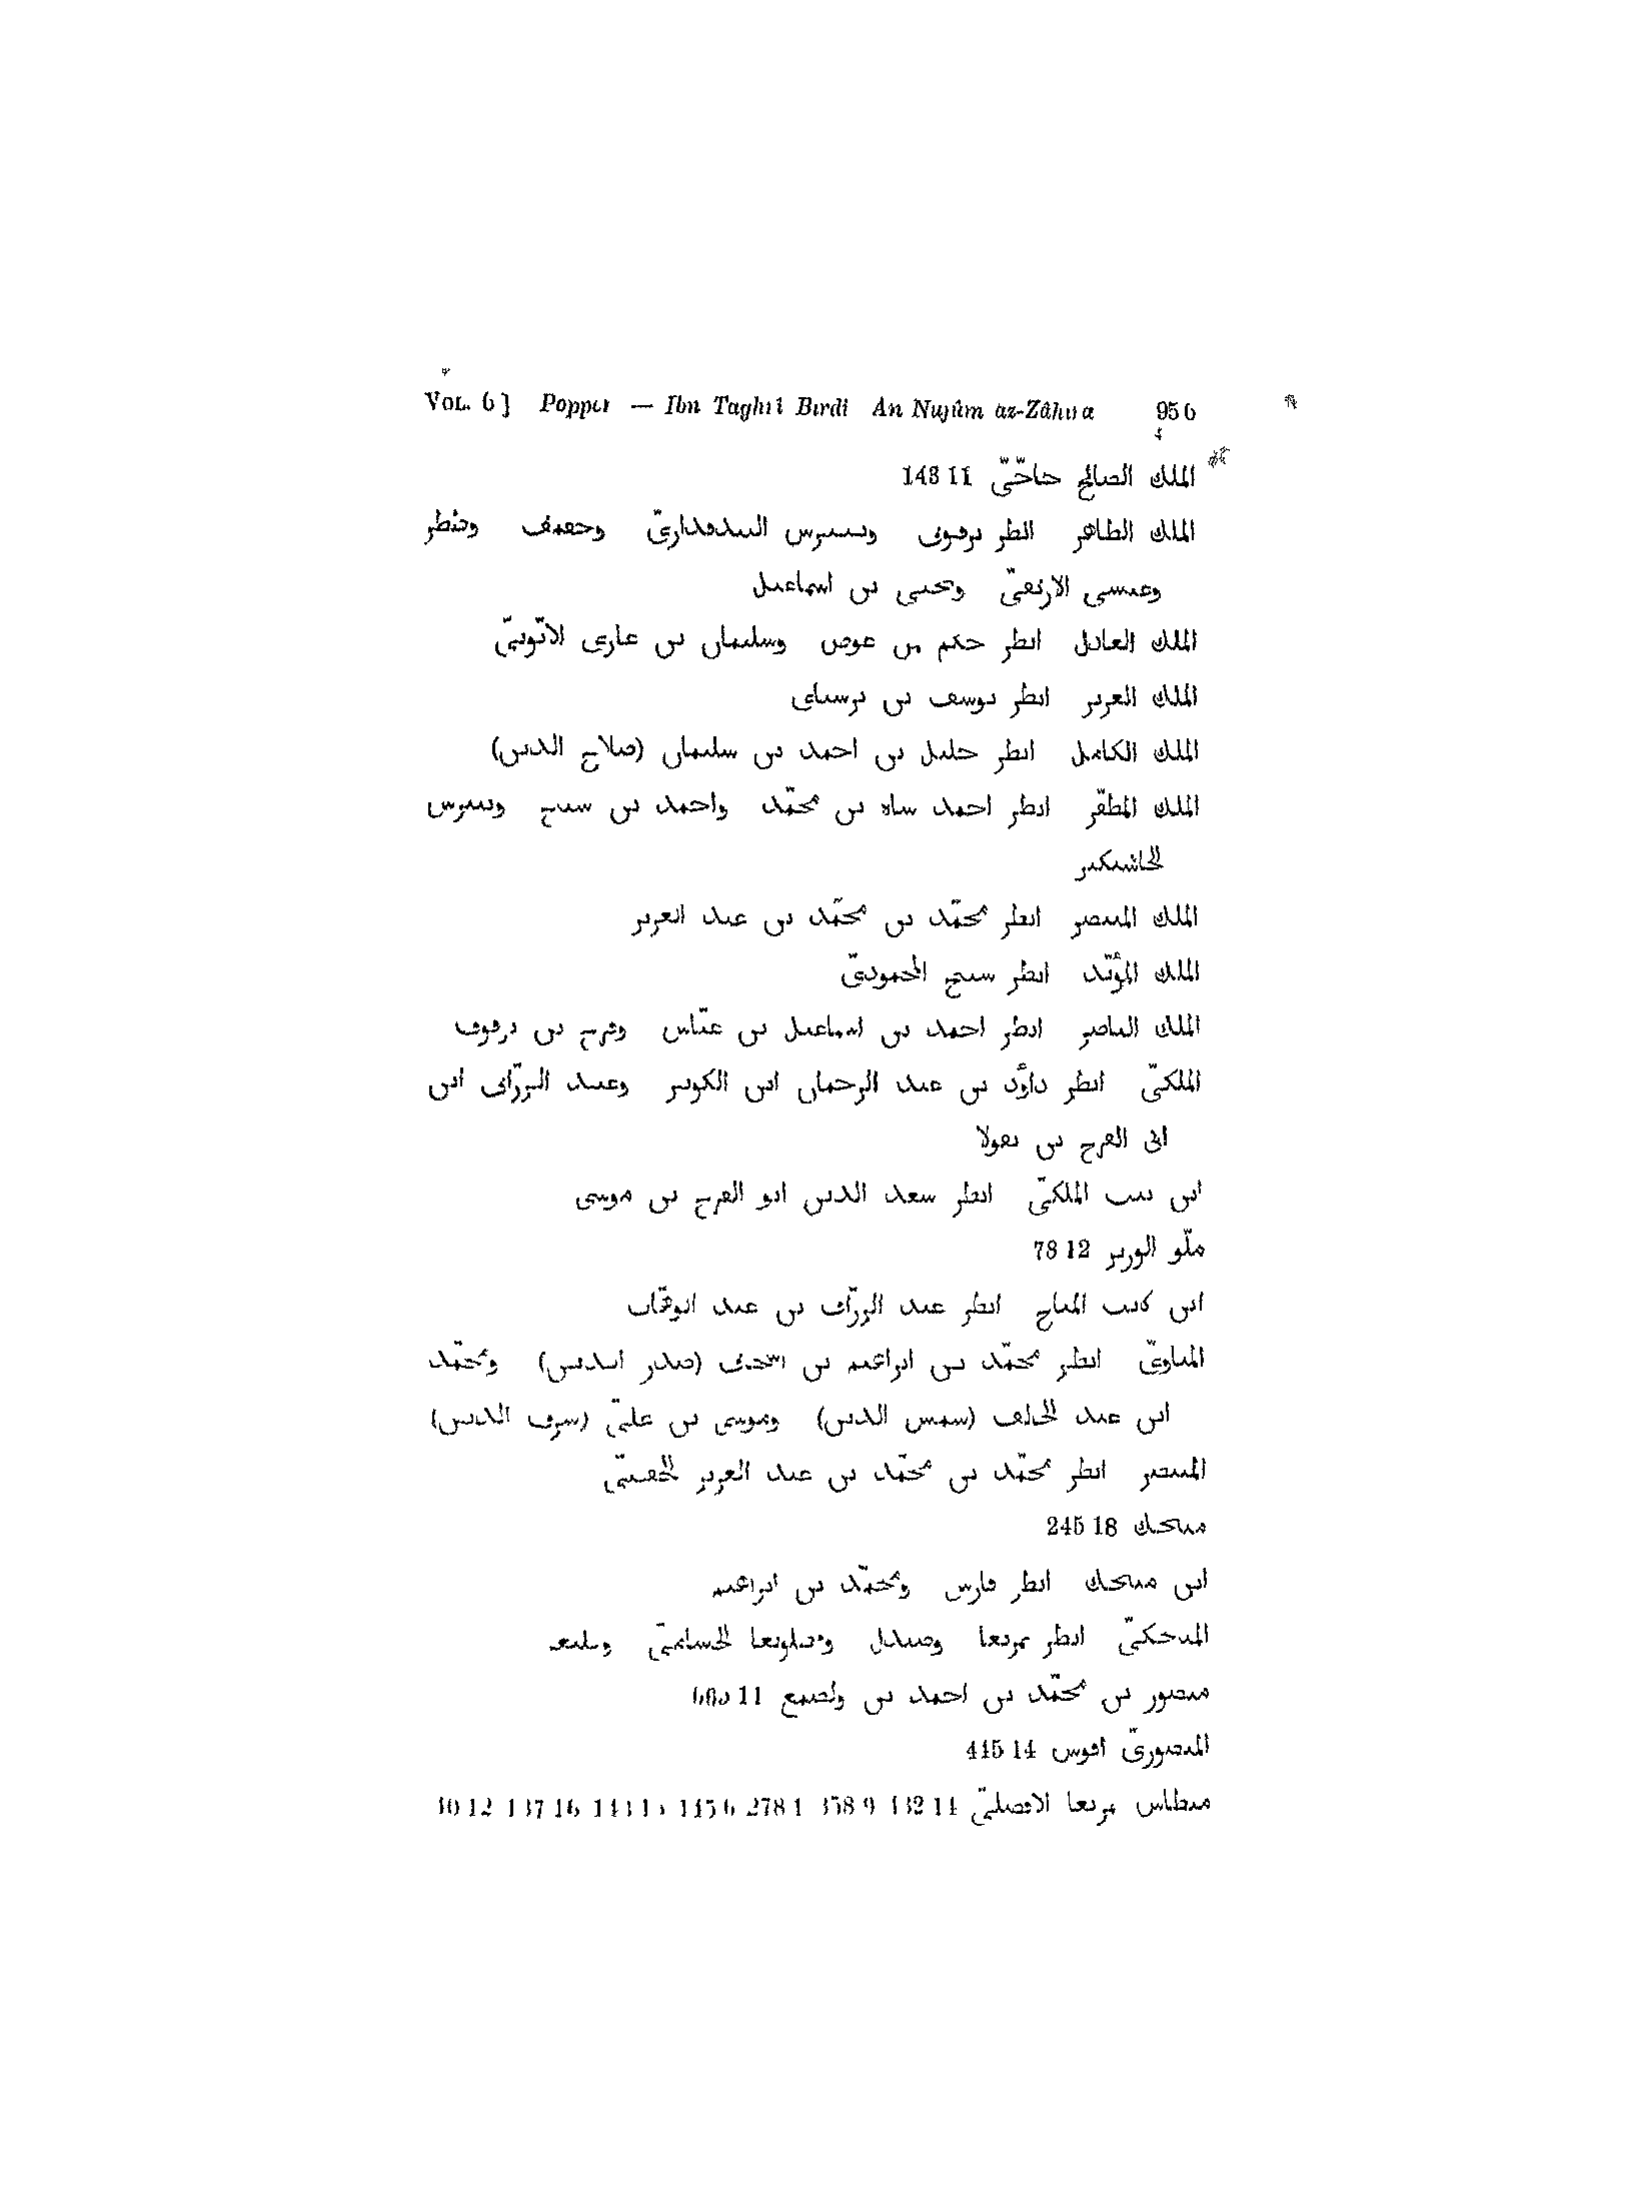 VOL. 6] Popper — Ibn Taghrî Birdî An Nujûm az-Zâhira 956
الملك الصالح حاجّىّ 143 11
الملك الظاهر انظر برقوق وبيبرس البندقدارىّ وجقمق وططر
وعيسى الارتقىّ ويحيى بن اسماعيل
الملك العادل انظر جكم من عوض وسليمان بن غازى الايّوبىّ
الملك العزيز انظر يوسف بن برسباى
الملك الكامل انظر خليل بن احمد بن سليمان (صلاح الدين)
الملك المظفّر انظر احمد شاه بن محمّد واحمد بن شيخ وبيبرس
الجاشنكير
الملك المنتصر انظر محمّد بن محمّد بن عبد العزيز
الملك المؤيّد انظر شيخ المحمودىّ
الملك الناصر انظر احمد بن اسماعيل بن عبّاس وفرج بن برقوق
الملكىّ انظر داوُد بن عبد الرحمان ابن الكويز وعبد الرزّاق ابن
ابى الفرج بن نقولا
ابن بنت الملكىّ انظر سعد الدين ابو الفرج بن موسى
ملّو الوزير 78 12
ابن كاتب المناخ انظر عبد الرزّاق بن عبد الوهّاب
المناوىّ انظر محمّد بن ابراهيم بن اسحق (صدر الدين) ومحمّد
ابن عبد الخالق (شمس الدين) وموسى بن علىّ (شرف الدين)
المنتصر انظر محمّد بن محمّد بن عبد العزيز الحفصىّ
منجك 245 18
ابن منجك انظر فارس ومحمّد بن ابراهيم
المنجكىّ انظر تمربغا وصندل وقطلوبغا الحسامىّ ويلبغا
منصور بن محمّد بن احمد بن 11
المنصورىّ اقوش 445 14
منطاش تمربغا الافضلىّ 132 14 358 9 278 1 145 6 137 16 40 12